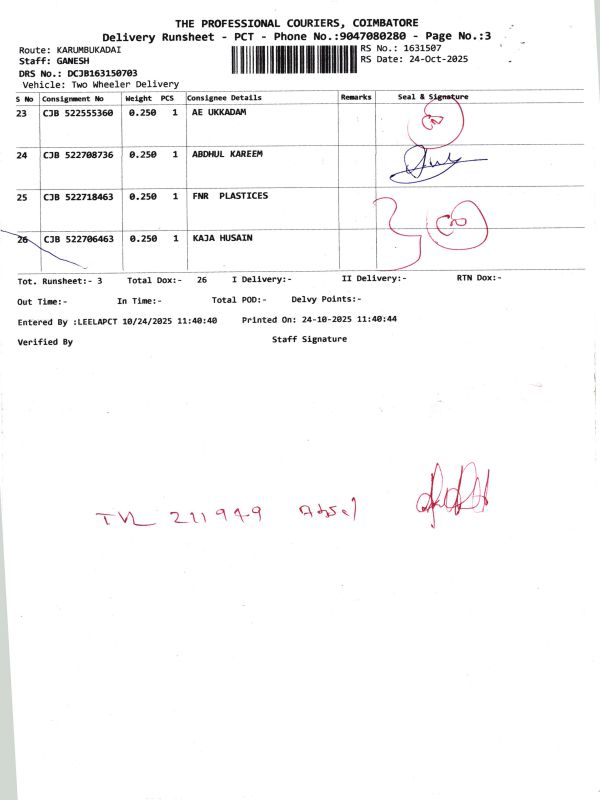 THE PROFESSIONAL COURIERS, COIMBATORE
Delivery Runsheet - PCT - Phone No.:9047080280 - Page No.:3
Route: KARUMBUKADAI RS No.: 1631507
Staff: GANESH RS Date: 24-Oct-2025
DRS No.: DCJB163150703
Vehicle: Two Wheeler Delivery
S No Consignment No Weight PCS Consignee Details Remarks Seal & Signature
23 CJB 522555360 0.250 1 AE UKKADAM
24 CJB 522708736 0.250 1 ABDHUL KAREEM
25 CJB 522718463 0.250 1 FNR PLASTICES
26 CJB 522706463 0.250 1 KAJA HUSAIN
Tot. Runsheet:- 3 Total Dox:- 26 I Delivery:- II Delivery:- RTN Dox:-
Out Time:- In Time:- Total POD:- Delvy Points:-
Entered By :LEELAPCT 10/24/2025 11:40:40 Printed On: 24-10-2025 11:40:44
Verified By Staff Signature
TVL